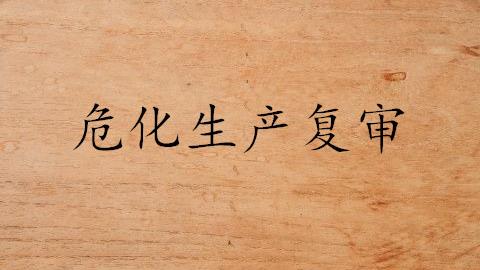 危化生产复审